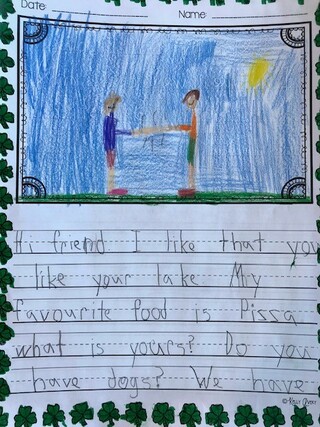 Date
Name
Hi friend I like that you
like your lake. My
favourite food is Pissa
what is yours? Do you
have dogs? We have